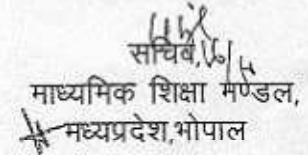 सचिव,
माध्यमिक शिक्षा मण्डल,
मध्यप्रदेश,भोपाल